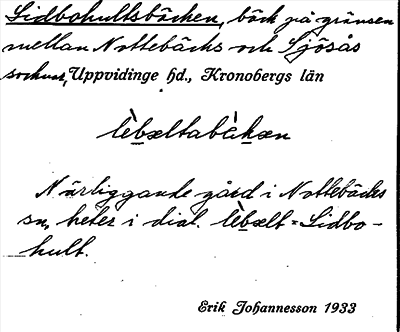 Lidbohultsbäcken, bäck på gränsen
mellan Nottebäcks och Sjösås
socknar, Uppvidinge hd., Kronobergs län
lèbæltabèkæn
Närliggande gård i Nottebäcks
sn, heter i dial. lèbælt = Lidbo-
hult.
Erik Johannesson 1933